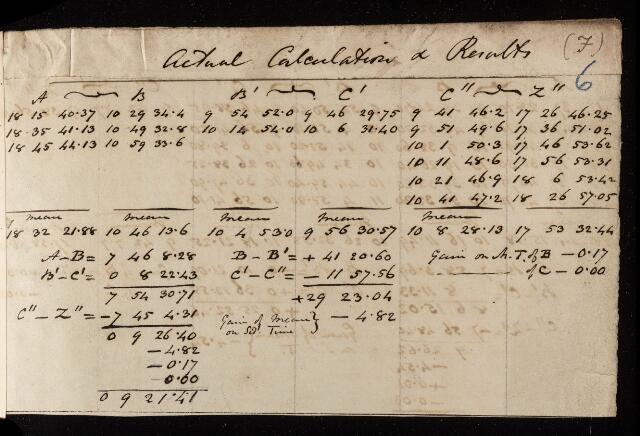 Actual Calculation & Results (7)
6
A B B' C' C" Z"
18 15 40.37 10 29 34.4 9 54 52.0 9 46 29.75 9 41 46.2 17 26 46.25
18 35 41.13 10 49 32.8 10 14 54.0 10 6 31.40 9 51 49.6 17 36 51.02
18 45 44.13 10 59 33.6 10 1 50.3 17 46 53.62
10 11 48.6 17 56 53.31
10 21 46.9 18 6 53.42
10 41 47.2 18 26 57.05
mean mean mean mean mean
18 32 21.88 10 46 13.6 10 4 53.0 9 56 30.57 10 8 28.13 17 53 32.44
A-B = 7 46 8.28 B-B' = + 41 20.60 Gain on M.T. of B -0.17
B'-C' = 0 8 22.43 C'-C" = - 11 57.56 of C -0.00
7 54 30.71 +29 23.04
C"-Z" = -7 45 4.31 Gain of Mean on Sid. Time } - 4.82
0 9 26.40
-4.82
-0.17
-0.00
0 9 21.41